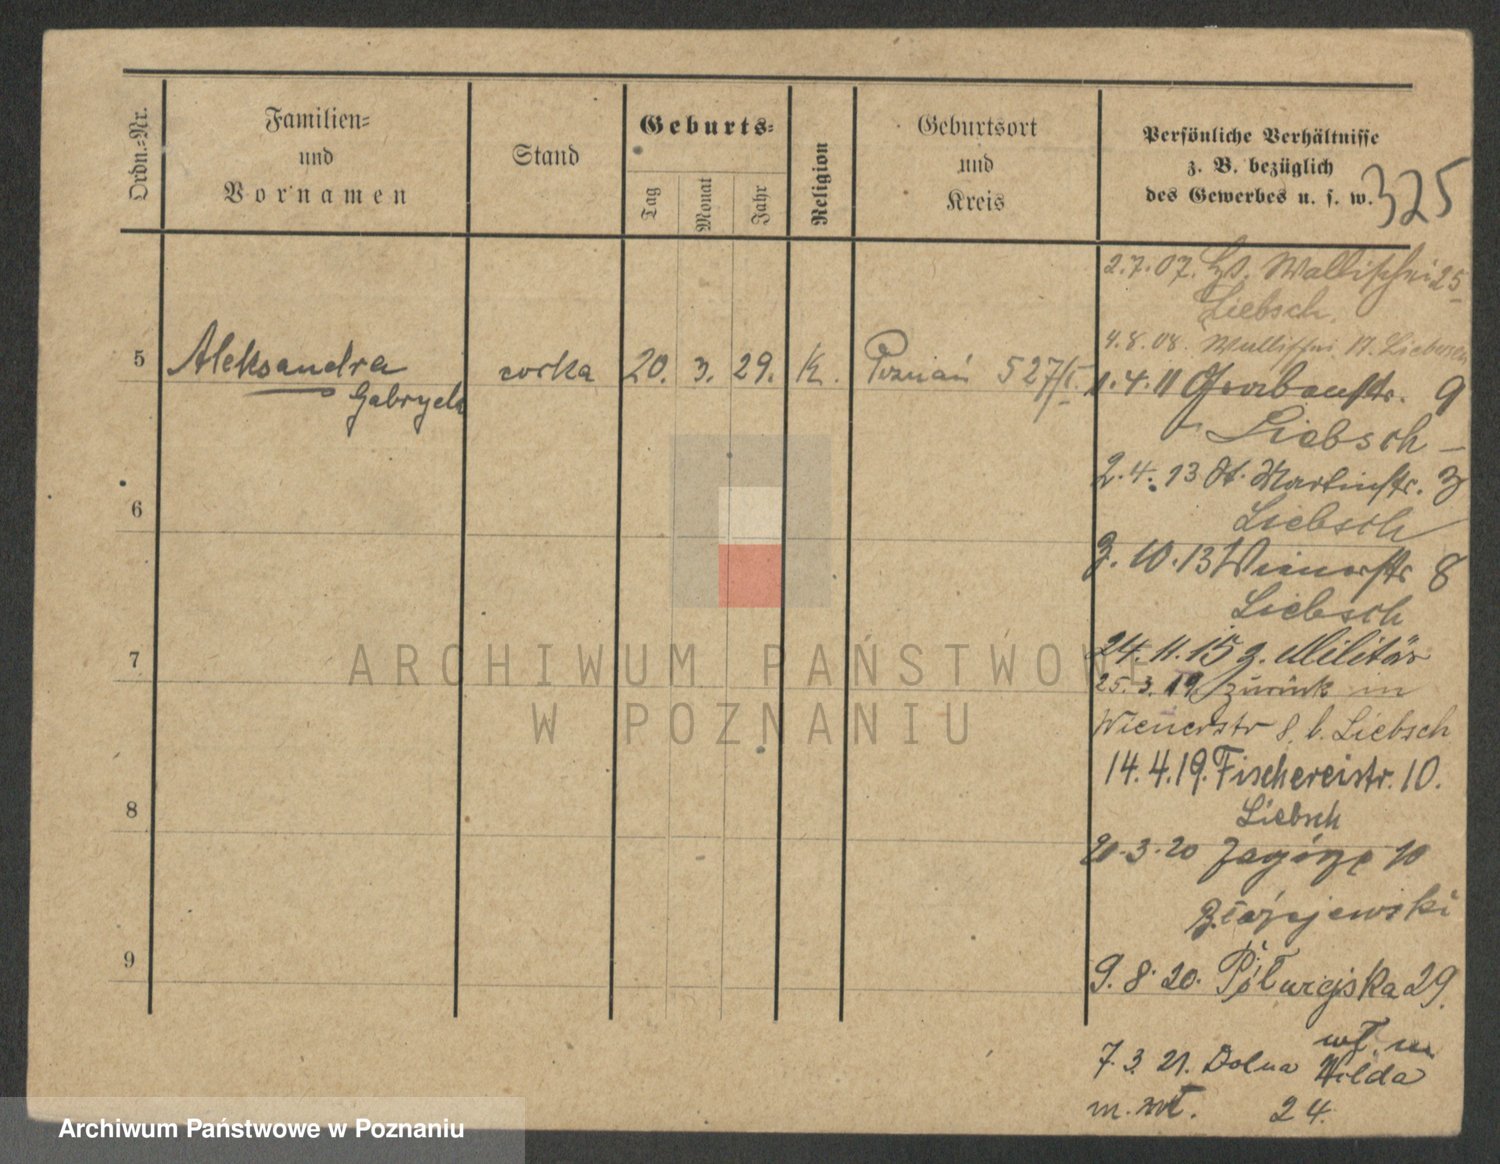 Ordn.-Nr.
Familien-
und
Vornamen
Stand
Geburts-
Tag
Monat
Jahr
Religion
Geburtsort
und
Kreis
Persönliche Verhältnisse
z. B. bezüglich
des Gewerbes u. s. w.
325
5 Aleksandra córka 20. 3. 29. K. Poznań 527/I
Gabryela
6
7
8
9
2.7.07. Wallischei 25
Liebsch.
4.8.08. Wallischei 17. Liebsch
1.4.11 Grabenstr. 9
Liebsch
2.4.13 St. Martinstr. 3
Liebsch
3.10.13 Wienerstr 8
Liebsch
24.11.15 z. Militär
25.3.19. zurück in
Wienerstr 8 b. Liebsch
14.4.19. Fischereistr. 10.
Liebsch
20.3.20 Zagórze 10
9.8.20. Półwiejska 29.
wł. m
7.3.21. Dolna Wilda
m. wł. 24.
ARCHIWUM PAŃSTWOWE
W POZNANIU
Archiwum Państwowe w Poznaniu